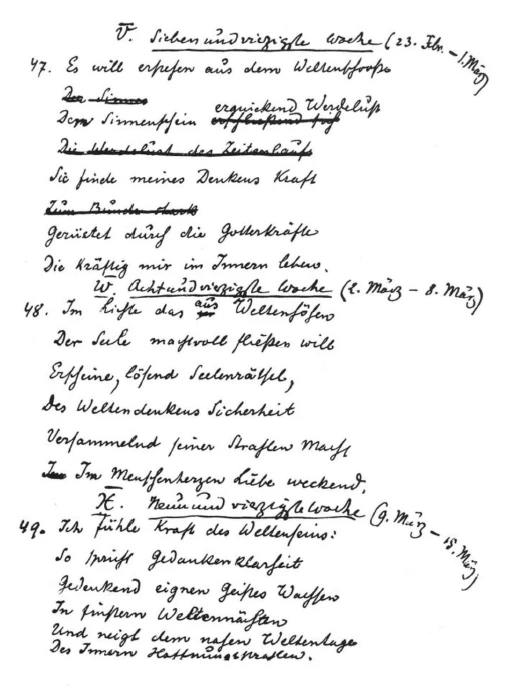 V. Siebenundvierzigste Woche (23. Febr. – 1. März)
47. Es will erstehen aus dem Weltenschoße
Der Sinnes
erquickend Werdelust
Dem Sinnenschein erschließend sich
Die Werdelust des Zeitenlaufs
Sie finde meines Denkens Kraft
Zum Bunde stark
Gerüstet durch die Gotteskräfte
Die kräftig mir im Innern leben.
W. Achtundvierzigste Woche (2. März – 8. März)
48. Im Lichte das aus Weltenhöhen
Der Seele machtvoll fließen will
Erscheine, lösend Seelenrätsel,
Des Weltendenkens Sicherheit
Versammelnd seiner Strahlen Macht
Im Menschenherzen Liebe weckend.
X. Neunundvierzigste Woche (9. März – 15. März)
49. Ich fühle Kraft des Weltenseins:
So spricht Gedankenklarheit
Gedenkend eignen Geistes Wachsen
In finstern Weltennächten
Und neigt dem nahen Weltentage
Des Innern Hoffnungsstrahlen.